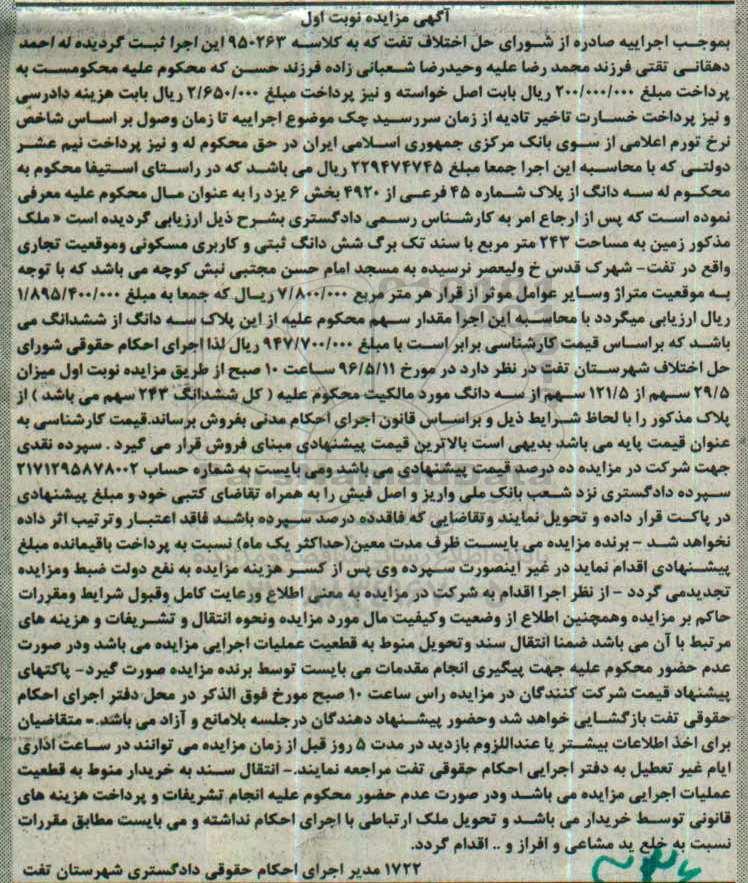 آگهی مزایده نوبت اول
بموجب اجراییه صادره از شورای حل اختلاف تفت که به کلاسه ۹۵۰۲۶۳ این اجرا ثبت گردیده له احمد
دهقانی تقتی فرزند محمد رضا علیه وحیدرضا شعبانی زاده فرزند حسن که محکوم علیه محکومست به
پرداخت مبلغ ۲۰۰/۰۰۰/۰۰۰ ریال بابت اصل خواسته و نیز پرداخت مبلغ ۲/۶۵۰/۰۰۰ ریال بابت هزینه دادرسی
و نیز پرداخت خسارت تاخیر تادیه از زمان سررسید چک موضوع اجراییه تا زمان وصول بر اساس شاخص
نرخ تورم اعلامی از سوی بانک مرکزی جمهوری اسلامی ایران در حق محکوم له و نیز پرداخت نیم عشر
دولتی که با محاسبه این اجرا جمعا مبلغ ۲۲۹۴۷۴۷۴۵ ریال می باشد که در راستای استیفا محکوم به
محکوم له سه دانگ از پلاک شماره ۴۵ فرعی از ۴۹۲۰ بخش ۶ یزد را به عنوان مال محکوم علیه معرفی
نموده است که پس از ارجاع امر به کارشناس رسمی دادگستری بشرح ذیل ارزیابی گردیده است « ملک
مذکور زمین به مساحت ۲۴۳ متر مربع با سند تک برگ شش دانگ ثبتی و کاربری مسکونی وموقعیت تجاری
واقع در تفت- شهرک قدس خ ولیعصر نرسیده به مسجد امام حسن مجتبی نبش کوچه می باشد که با توجه
به موقعیت متراژ وسایر عوامل موثر از قرار هر متر مربع ۷/۸۰۰/۰۰۰ ریال که جمعا به مبلغ ۱/۸۹۵/۴۰۰/۰۰۰
ریال ارزیابی میگردد با محاسبه این اجرا مقدار سهم محکوم علیه از این پلاک سه دانگ از ششدانگ می
باشد که براساس قیمت کارشناسی برابر است با مبلغ ۹۴۷/۷۰۰/۰۰۰ ریال لذا اجرای احکام حقوقی شورای
حل اختلاف شهرستان تفت در نظر دارد در مورخ ۹۶/۵/۱۱ ساعت ۱۰ صبح از طریق مزایده نوبت اول میزان
۲۹/۵ سهم از ۱۲۱/۵ سهم از سه دانگ مورد مالکیت محکوم علیه ( کل ششدانگ ۲۴۳ سهم می باشد ) از
پلاک مذکور را با لحاظ شرایط ذیل و براساس قانون اجرای احکام مدنی بفروش برساند.قیمت کارشناسی به
عنوان قیمت پایه می باشد بدیهی است بالاترین قیمت پیشنهادی مبنای فروش قرار می گیرد . سپرده نقدی
جهت شرکت در مزایده ده درصد قیمت پیشنهادی می باشد ومی بایست به شماره حساب ۲۱۷۱۲۹۵۸۷۸۰۰۲
سپرده دادگستری نزد شعب بانک ملی واریز و اصل فیش را به همراه تقاضای کتبی خود و مبلغ پیشنهادی
در پاکت قرار داده و تحویل نمایند وتقاضایی که فاقدده درصد سپرده باشد فاقد اعتبار وترتیب اثر داده
نخواهد شد - برنده مزایده می بایست ظرف مدت معین(حداکثر یک ماه) نسبت به پرداخت باقیمانده مبلغ
پیشنهادی اقدام نماید در غیر اینصورت سپرده وی پس از کسر هزینه مزایده به نفع دولت ضبط ومزایده
تجدیدمی گردد - از نظر اجرا اقدام به شرکت در مزایده به معنی اطلاع ورعایت کامل وقبول شرایط ومقررات
حاکم بر مزایده وهمچنین اطلاع از وضعیت وکیفیت مال مورد مزایده ونحوه انتقال و تشریفات و هزینه های
مرتبط با آن می باشد ضمنا انتقال سند وتحویل منوط به قطعیت عملیات اجرایی مزایده می باشد ودر صورت
عدم حضور محکوم علیه جهت پیگیری انجام مقدمات می بایست توسط برنده مزایده صورت گیرد- پاکتهای
پیشنهاد قیمت شرکت کنندگان در مزایده راس ساعت ۱۰ صبح مورخ فوق الذکر در محل دفتر اجرای احکام
حقوقی تفت بازگشایی خواهد شد وحضور پیشنهاد دهندگان درجلسه بلامانع و آزاد می باشد.- متقاضیان
برای اخذ اطلاعات بیشتر یا عنداللزوم بازدید در مدت ۵ روز قبل از زمان مزایده می توانند در ساعت اداری
ایام غیر تعطیل به دفتر اجرایی احکام حقوقی تفت مراجعه نمایند.- انتقال سند به خریدار منوط به قطعیت
عملیات اجرایی مزایده می باشد ودر صورت عدم حضور محکوم علیه انجام تشریفات و پرداخت هزینه های
قانونی توسط خریدار می باشد و تحویل ملک ارتباطی با اجرای احکام نداشته و می بایست مطابق مقررات
نسبت به خلع ید مشاعی و افراز و .. اقدام گردد.
۱۷۲۲ مدیر اجرای احکام حقوقی دادگستری شهرستان تفت